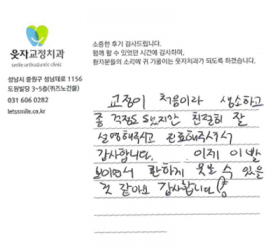 웃자교정치과
smile orthodontic clinic
성남시 중원구 성남대로 1156
도원빌딩 3~5층(퀴즈노건물)
031 606 0282
letssmile.co.kr
소중한 후기 감사드립니다.
함께 할 수 있었던 시간에 감사하며,
환자분들의 소리에 귀 기울이는 웃자치과가 되도록 하겠습니다.
교정이 처음이라 생소하고
좀 걱정도 했지만 친절히 잘
설명해주시고 진료해주셔서
감사합니다. 이제 이 발
보이면서 환하게 웃을 수 있을
것 같아요 감사합니다